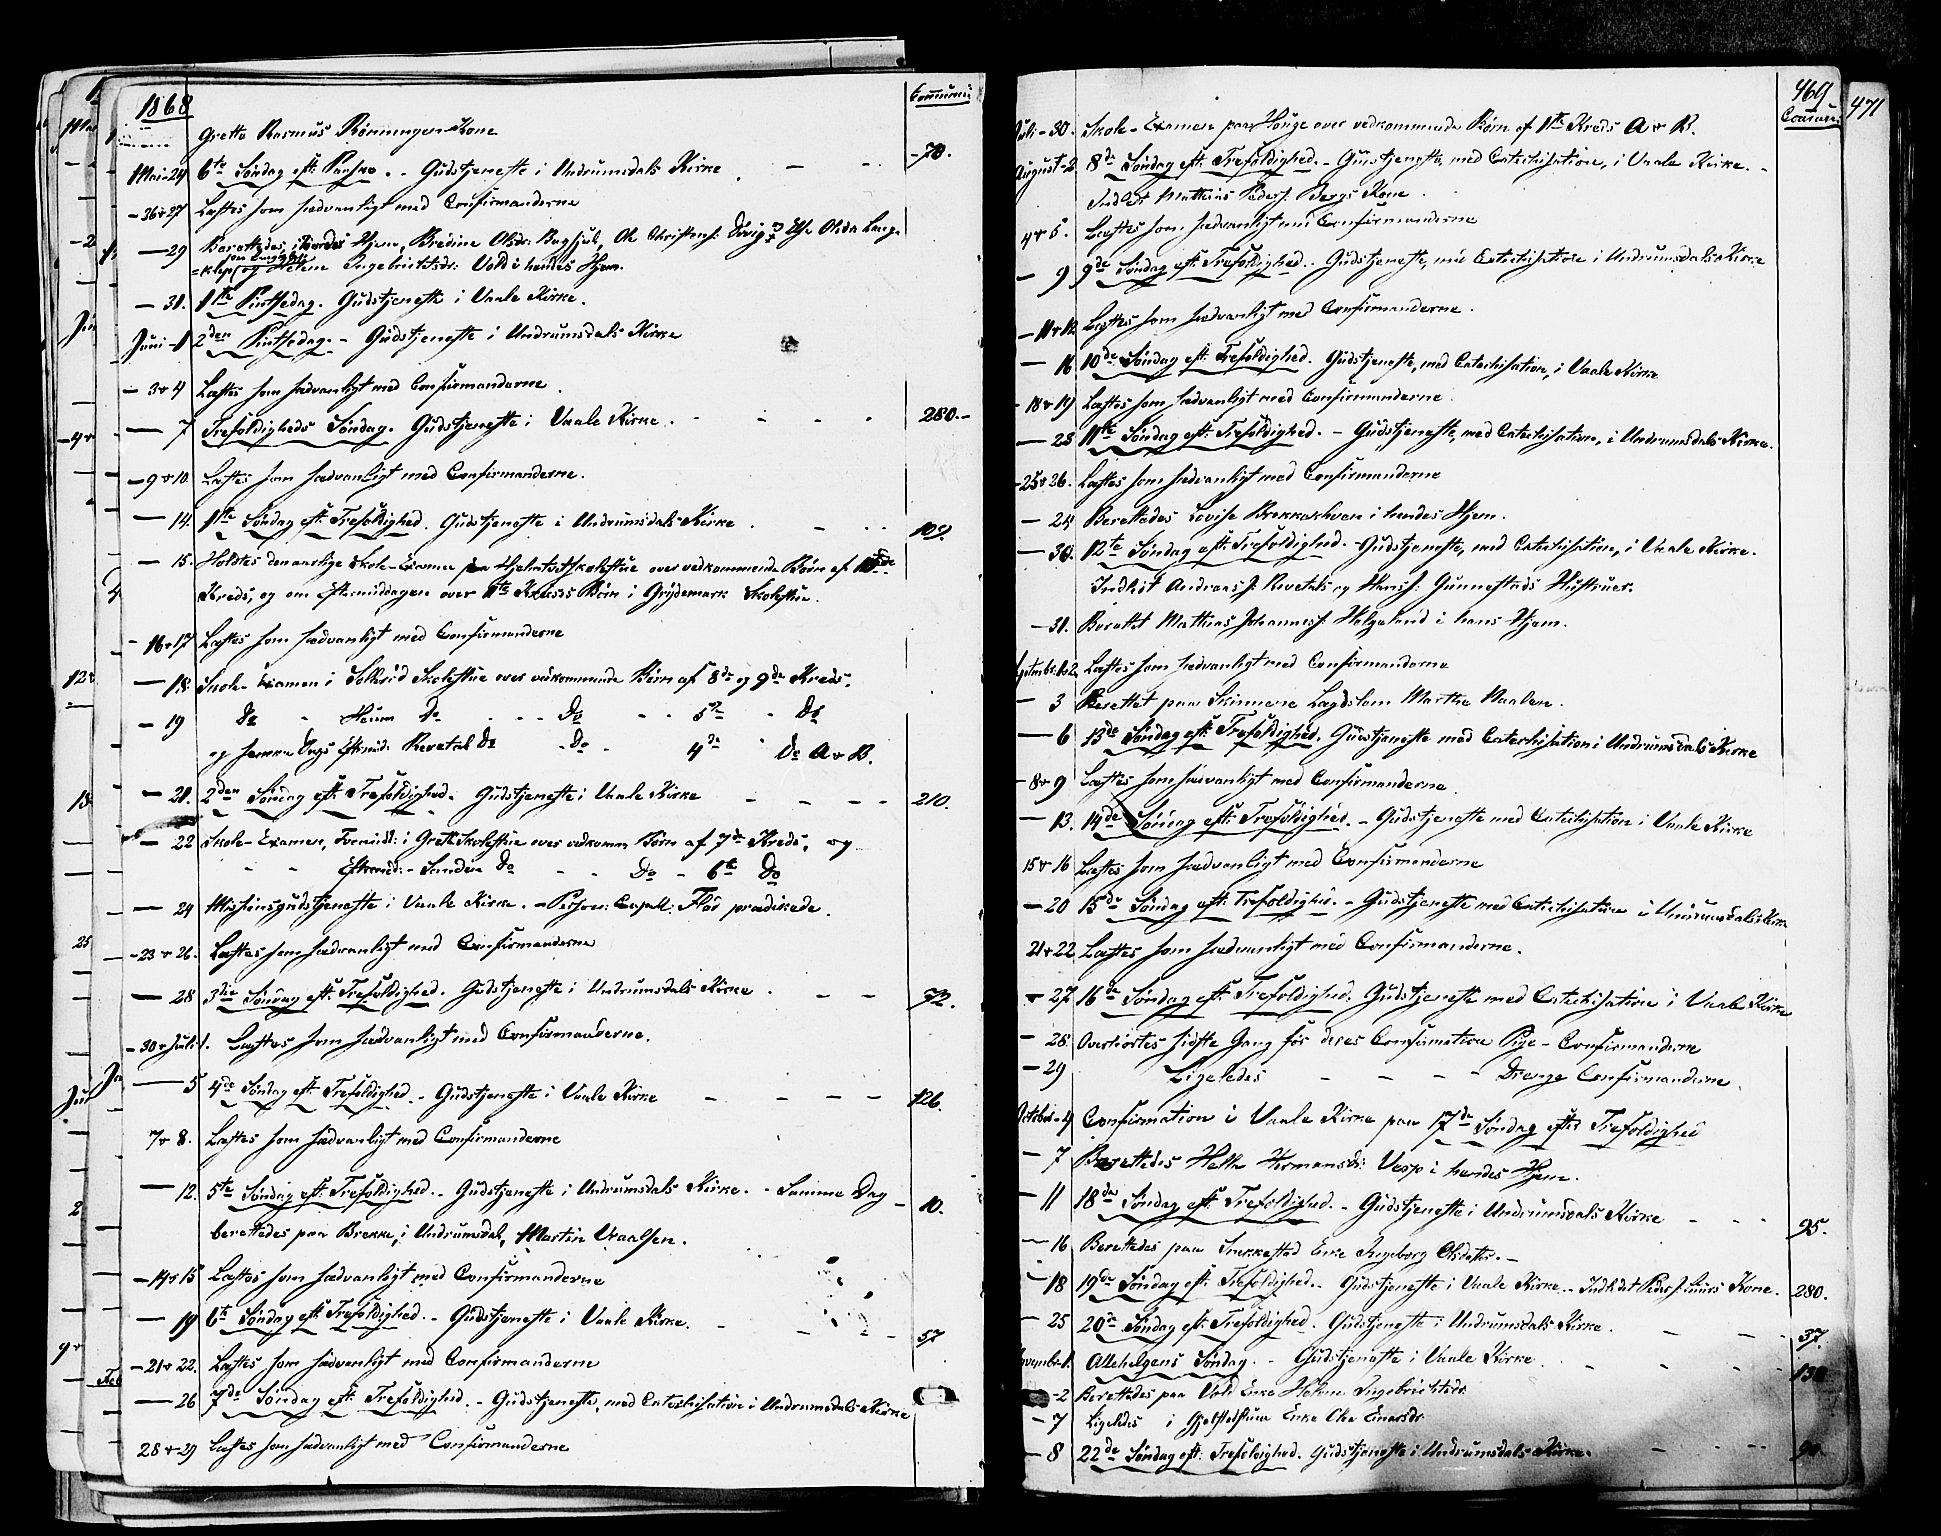 1868
Communi
Grethe Rasmus Rönningens Kone
Mai-24 6te Söndag eft. Paaske. - Gudstjeneste i Undrumsdals Kirke - 70.
- 26 & 27 Læstes som sædvanligt med Confirmanderne
- 29 Berettedes, i hendes Hjem, Bredine Olsdr.
og Helene Ingebrichtsdr: Vold i hendes Hjem.
- 31. 1ste Pintsedag. Gudstjeneste i Vaale Kirke.
Juni-1 2den Pintsedag. - Gudstjeneste i Undrumsdals Kirke
- 3 & 4 Læstes som sædvanligt med Confirmanderne.
- 7 Trefoldigheds Söndag. Gudstjeneste i Vaale Kirke. - - - 280.-
- 9 & 10. Læstes som sædvanligt med Confirmanderne.
- 14. 1ste Söndag eft. Trefoldighed. Gudstjeneste i Undrumsdals Kirke. - - - 109.
- 15. Holdtes den aarlige Skole-Examen paa Skolestue over vedkommende Börn af
Kreds, og om Eftermiddagen over Kredses Börn i Grydemark Skolestue.
- 16 & 17 Læstes som sædvanligt med Confirmanderne
- 18. Skole-Examen i Soleröd Skolestue over vedkommende Börn af 8de og 9de Kreds.
- 19 Do - Heum Do - - - Do - - 5te - Do
og samme Dags Eftmid: Revetal Do - Do - 4de Do A & B.
- 21. 2den Söndag eft. Trefoldighed. Gudstjeneste i Vaale Kirke - - - - 210.
- 22 Skole-Examen, Formidd: i Skolestue over vedkomm. Börn af 7de Kreds, og
- - Eftermid: - Sanden Do - - Do - 6te Do
- 24 Missionsgudstjeneste i Vaale Kirke. - Person: Capell: Flod prædikede.
- 23 & 26. Læstes som sædvanligt med Confirmanderne
- 28 3die Söndag eft. Trefoldighed. Gudstjeneste i Undrumsdals Kirke. - - 72.
- 30 & Juli 1. Læstes som sædvanligt med Confirmanderne.
- 5 4de Söndag eft. Trefoldighed. - Gudstjeneste i Vaale Kirke - - - - 126.
7 & 8. Læstes som sædvanligt med Confirmanderne
- 12. 5te Söndag eft. Trefoldighed. - Gudstjeneste i Undrumsdals Kirke. - Samme Dag - 10.
berettedes paa Brekke, i Undrumsdal, Martin Vaalsen.
- 14 & 15 Læstes som sædvanligt med Confirmanderne
- 19 6te Söndag eft. Trefoldighed. - Gudstjeneste i Vaale Kirke. - - - - 57
- 21 & 22. Læstes som sædvanligt med Confirmanderne
- 26 7de Söndag eft. Trefoldighed. - Gudstjeneste, med Catechisation i Undrumsdals Kirke
28 & 29 Læstes som sædvanligt med Confirmanderne
469
Commun.
471
Juli-30. Skole-Examen paa Houge over vedkommende Börn af 1ste Kreds A & B.
August-2 8de Söndag eft. Trefoldighed. - Gudstjeneste, med Catechisation, i Vaale Kirke. -
Indledt Mathias Peders: Bergs Kone.
4 & 5. Læstes som sædvanligt med Confirmanderne
- 9 9de Söndag eft. Trefoldighed. - Gudstjeneste, med Catechisation i Undrumsdals Kirke
- 11 & 12 Læstes som sædvanligt med Confirmanderne.
- 16 10de Söndag eft. Trefoldighed. Gudstjeneste, med Catechisation, i Vaale Kirke
- 18 & 19 Læstes som sædvanligt med Confirmanderne
- 23 11te Söndag eft. Trefoldighed. - Gudstjeneste, med Catechisation, i Undrumsdals Kirke.
- 25 & 26. Læstes som sædvanligt med Confirmanderne
- 24 Berettedes Lovise i hendes Hjem.
- 30. 12te Söndag eft. Trefoldighed. - Gudstjeneste, med Catechisation, i Vaale Kirke.
Indledt Andreas J. Revetals og Hans J. Gunnestads Hustruer.
- 31. Berettet Mathias Johannes: Helgeland i hans Hjem.
Septembr. 1 & 2. Læstes som sædvanligt med Confirmanderne
- 3 Berettet paa Skinnene Lægdslem Marthe Naalen.
- 6 13de Söndag eft. Trefoldighed. Gudstjeneste med Catechisation i Undrumsdals Kirke
- 8 & 9 Læstes som sædvanligt med Confirmanderne
- 13. 14de Söndag eft. Trefoldighed. - Gudstjeneste med Catechisation i Vaale Kirke
15 & 16 Læstes som sædvanligt med Confirmanderne
- 20 15de Söndag eft. Trefoldighed. - Gudstjeneste med Catechisation i Undrumsdals Kirke
21 & 22 Læstes som sædvanligt med Confirmanderne.
- 27 16de Söndag eft. Trefoldighed. Gudstjeneste med Catechisation i Vaale Kirke
- 28. Overhörtes sidste Gang för deres Confirmation Pige-Confirmanderne
- 29 Ligeledes - - - - Drenge Confirmanderne.
October-4 Confirmation i Vaale Kirke paa 17de Söndag efter Trefoldighed
- 7 Berettedes Helle Hermansdr: Vasp i hendes Hjem.
- 11 18de Söndag eft. Trefoldighed. - Gudstjeneste i Undrumsdals Kirke - - - 95.
- 16 Berettedes paa Snekkestad Enke Ingeborg Olsdatter. -
- 18 19de Söndag eft. Trefoldighed. - Gudstjeneste i Vaale Kirke. - Indledt Peder J. Kone. 280.
- 25 20de Söndag eft. Trefoldighed. Gudstjeneste i Undrumsdals Kirke. - - - 37.
Novembr-1. Allehelgens Söndag. - Gudstjeneste i Vaale Kirke. - - - - 130
- 2 Berettedes paa Vold Enke Helene Ingebrichtsdr
- 7 Ligeledes i Enke Einarsdr
- 8 22de Söndag eft. Trefoldighed. Gudstjeneste i Undrumsdals Kirke. - - - 90.